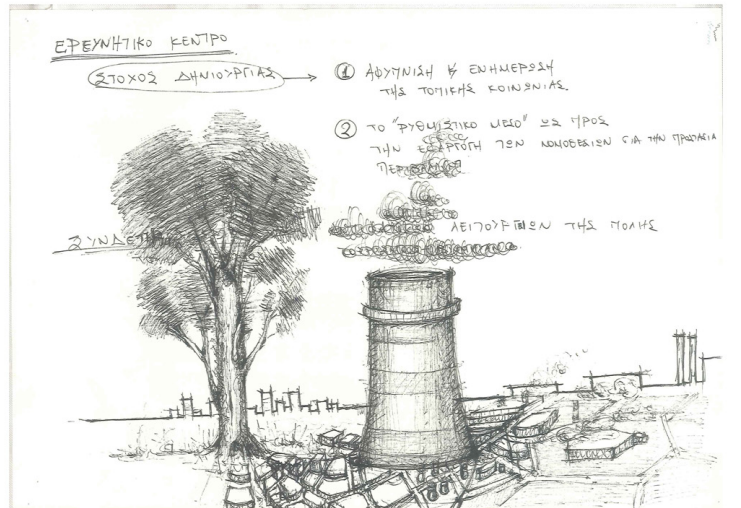 ΕΡΕΥΝΗΤΙΚΟ ΚΕΝΤΡΟ
ΣΤΟΧΟΣ ΔΗΜΙΟΥΡΓΙΑΣ →
① ΑΦΥΠΝΙΣΗ & ΕΝΗΜΕΡΩΣΗ
ΤΗΣ ΤΟΠΙΚΗΣ ΚΟΙΝΩΝΙΑΣ.
② ΤΟ "ΡΥΘΜΙΣΤΙΚΟ ΜΕΣΟ" ΩΣ ΠΡΟΣ
ΤΗΝ ΕΦΑΡΜΟΓΗ ΤΩΝ ΝΟΜΟΘΕΣΙΩΝ ΓΙΑ ΤΗΝ ΠΡΟΣΤΑΣΙΑ
ΛΕΙΤΟΥΡΓΙΩΝ ΤΗΣ ΠΟΛΗΣ